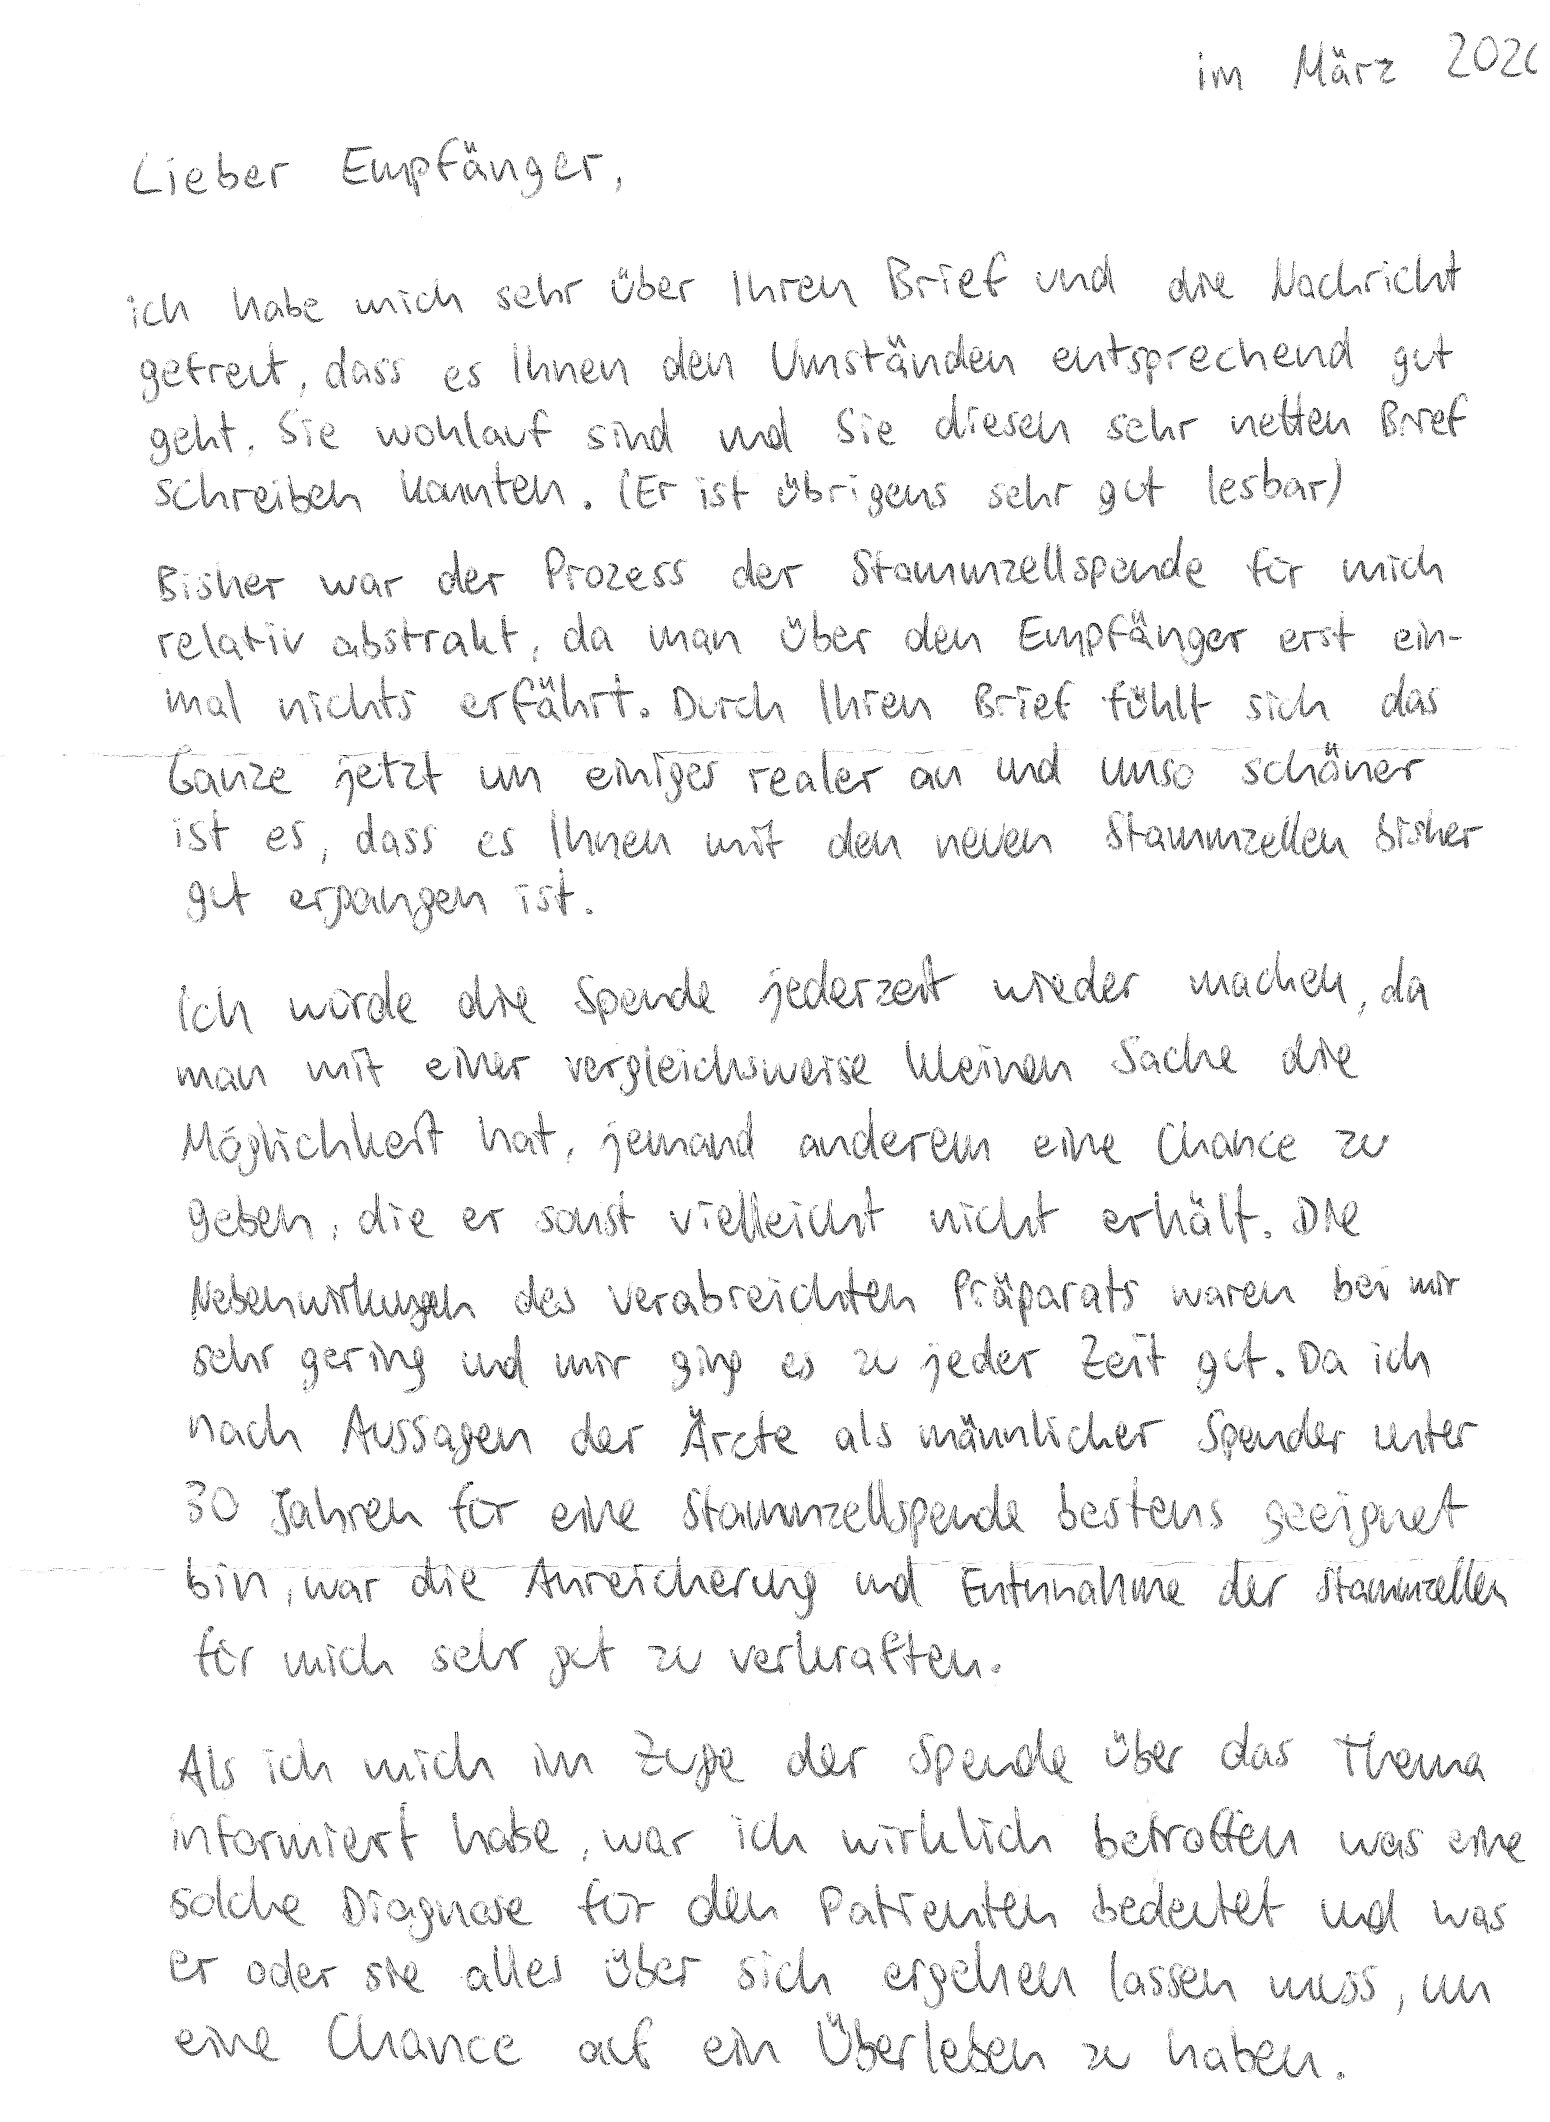 im März 202
Lieber Empfänger,
ich habe mich sehr über Ihren Brief und die Nachricht
gefreut, dass es Ihnen den Umständen entsprechend gut
geht. Sie wohlauf sind und Sie diesen sehr netten Brief
schreiben konnten. (Er ist übrigens sehr gut lesbar)
Bisher war der Prozess der Stammzellspende für mich
relativ abstrakt, da man über den Empfänger erst ein-
mal nichts erfährt. Durch Ihren Brief fühlt sich das
Ganze jetzt um einiges realer an und umso schöner
ist es, dass es Ihnen mit den neuen Stammzellen bisher
gut ergangen ist.
Ich würde die Spende jederzeit wieder machen, da
man mit einer vergleichsweise kleinen Sache die
Möglichkeit hat, jemand anderem eine Chance zu
geben, die er sonst vielleicht nicht erhält. Die
Nebenwirkungen des verabreichten Präparats waren bei mir
sehr gering und mir ging es zu jeder Zeit gut. Da ich
nach Aussagen der Ärzte als männlicher Spender unter
30 Jahren für eine Stammzellspende bestens geeignet
bin, war die Anreicherung und Entnahme der Stammzellen
für mich sehr gut zu verkraften.
Als ich mich im Zuge der Spende über das Thema
informiert habe, war ich wirklich betroffen was eine
solche Diagnose für den Patienten bedeutet und was
er oder sie alles über sich ergehen lassen muss, um
eine Chance auf ein Überleben zu haben.